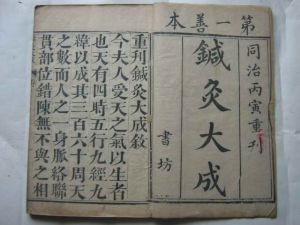 第一善本
同治丙寅重刊
鍼灸大成
書坊
重刊鍼灸大成敘
今夫人受天之氣以生者
也天有四時五行九經九
緯以成其三百六十周天
之數而人之一身脈絡聯
貫部位錯陳無不與之相